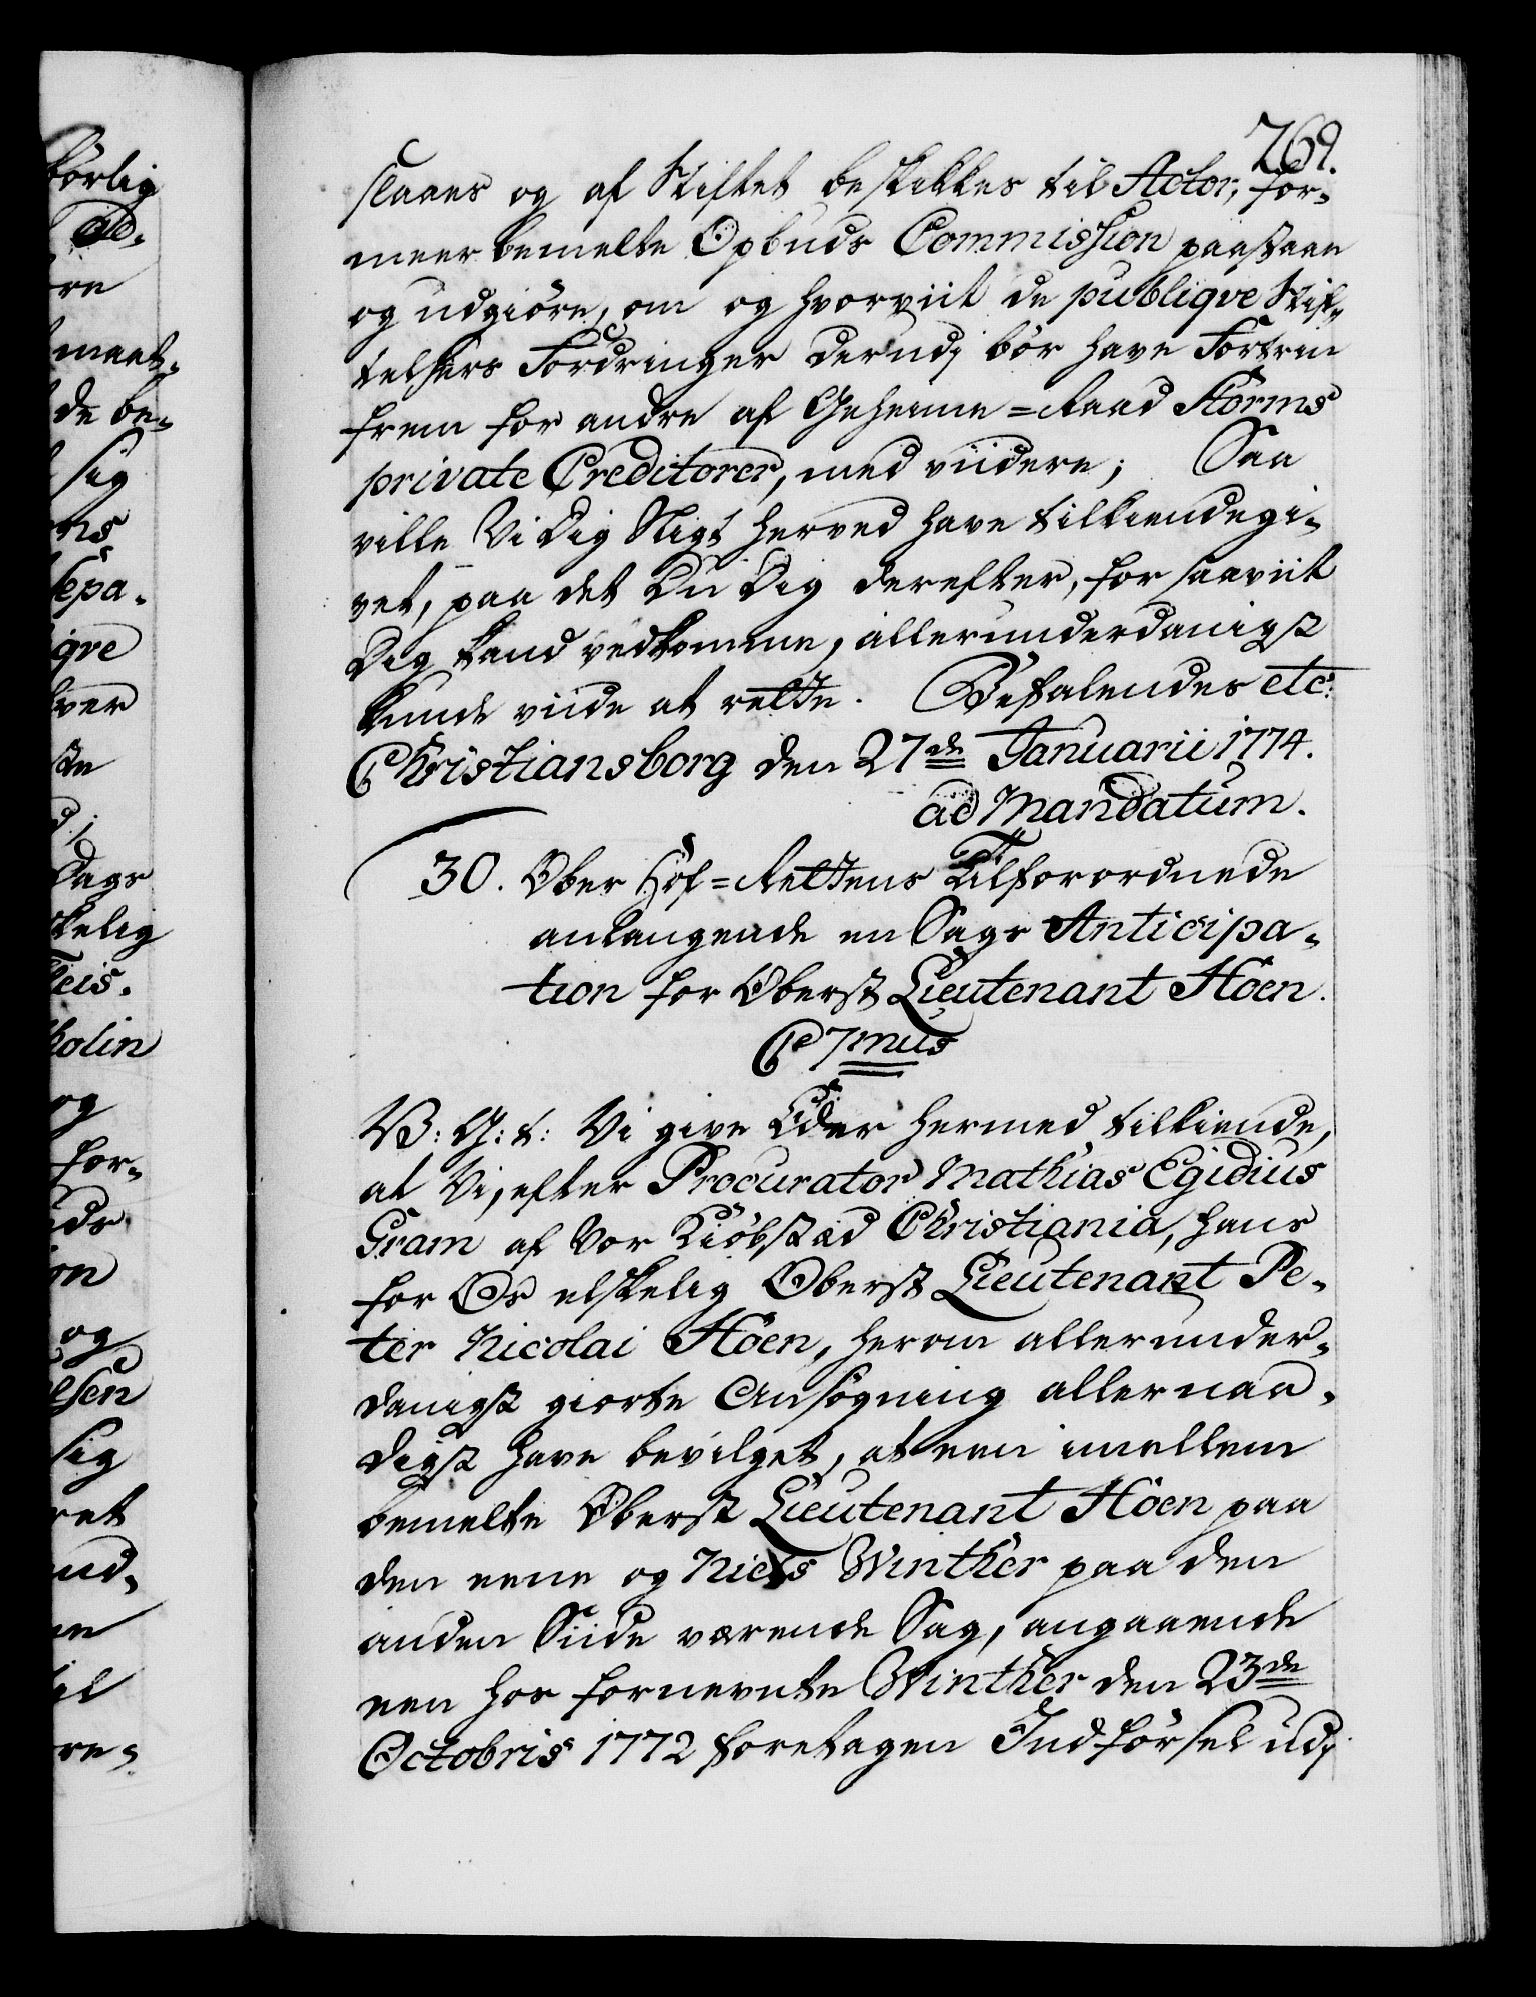 269.
slaaes og af Stiftet beskikkes til Actor, for-
meer bemelte Opbuds Commission paastaae
og udgiöre, om og hvorviit de publiqve Stif-
telsers Fordringer derudj bör have Fortrin
frem for andre af Geheime-Raad Storms
private Creditorer, med viidere; Saa
ville Vi Dig Sligt herved have tilkiendegi-
vet, paa det Du Dig derefter, for saaviit
Dig kand vedkomme, allerunderdanigst
kunde viide at rette. Befalendes etc:
Christiansborg den 27de Januarii 1774.
ad Mandatum.
30. Ober Hof-Rettens Tilforordnede
anlangende en Sags Anticipa-
tion for Oberst Lieutenant Höen.
C 7mus
V: G: t: Vi give Eder hermed tilkiende,
at Vi, efter Procurator Mathias Egidius
Gram af Vor Kiöbstæd Christiania, hans
for Os elskelig Oberst Lieutenant Pe-
ter Nicolai Höen, herom allerunder-
danigst giorte Ansögning allernaa-
digst have bevilget, at een imellem
bemelte Oberst Lieutenant Höen paa
den eene og Niels Winther paa den
anden Siide værende Sag, angaaende
een hos fornevnte Winther den 23de
Octobris 1772 foretagen Indförsel udj
börlig
re
maat-
de be-
sig
ns
sepa-
qve
hver
ste
Dags
kelig
holin
og
for-
on
og
elsen
sig
ret
ud-
til
re-